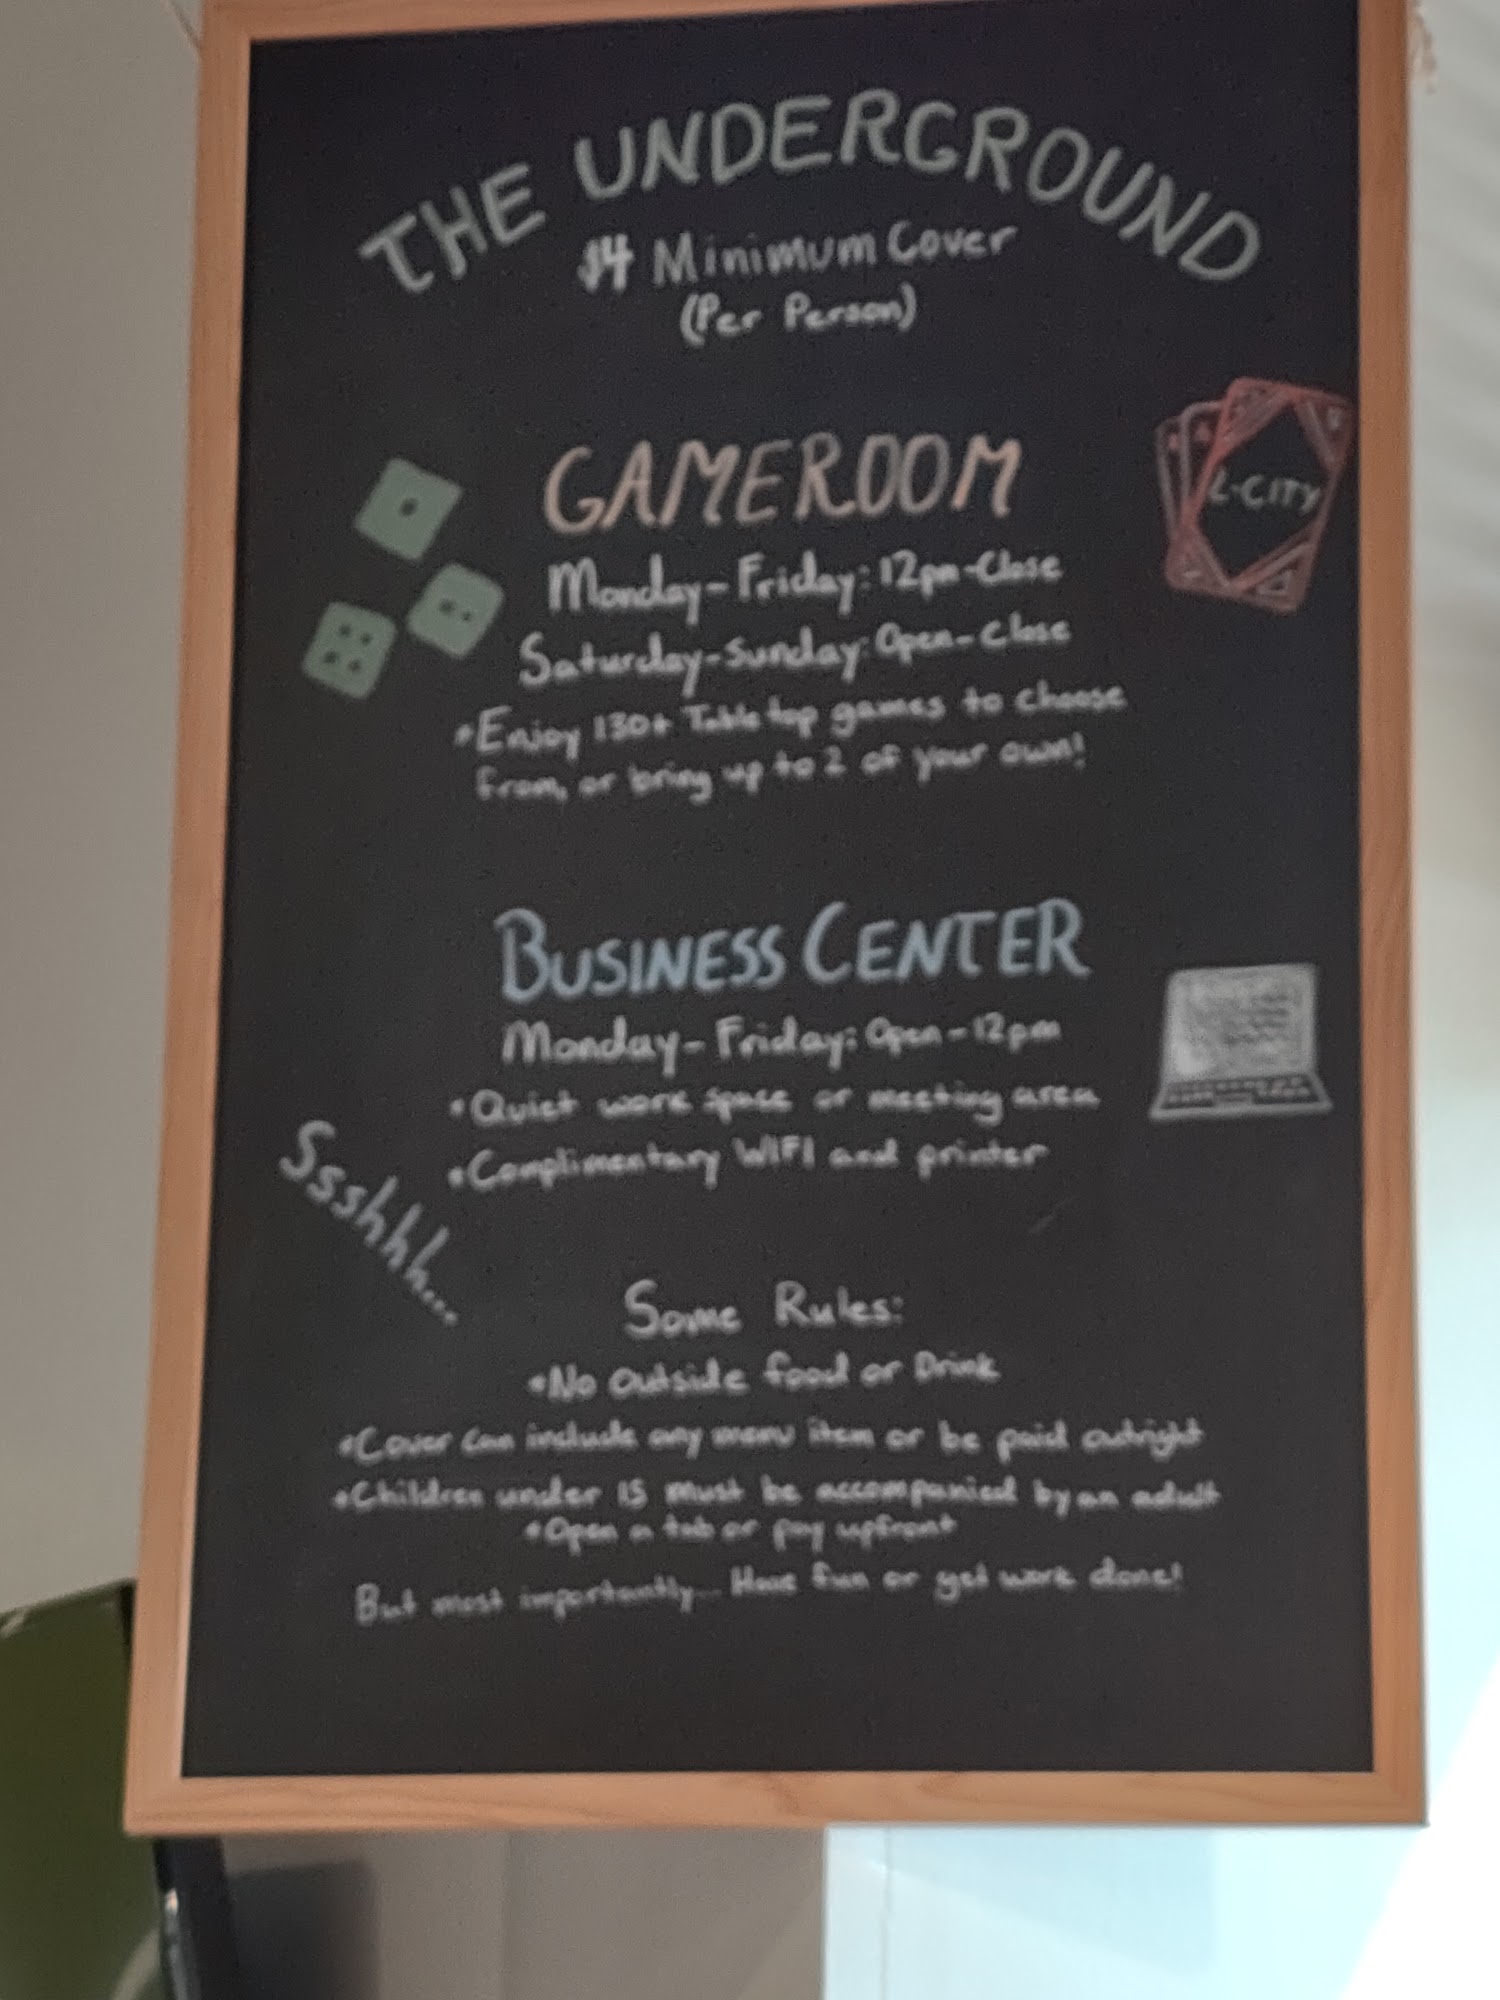 THE UNDERGROUND
$4 Minimum Cover
(Per Person)
GAMEROOM
L-CITY
Monday-Friday: 12pm-Close
Saturday-Sunday: Open-Close
*Enjoy 130+ Table top games to choose
from, or bring up to 2 of your own!
BUSINESS CENTER
Monday-Friday: Open-12pm
*Quiet work space or meeting area
*Complimentary WIFI and printer
Ssshhh...
Some Rules:
*No outside food or Drink
*Cover can include any menu item or be paid outright
*Children under 15 must be accompanied by an adult
*Open a tab or pay upfront
But most importantly... Have fun or get work done!